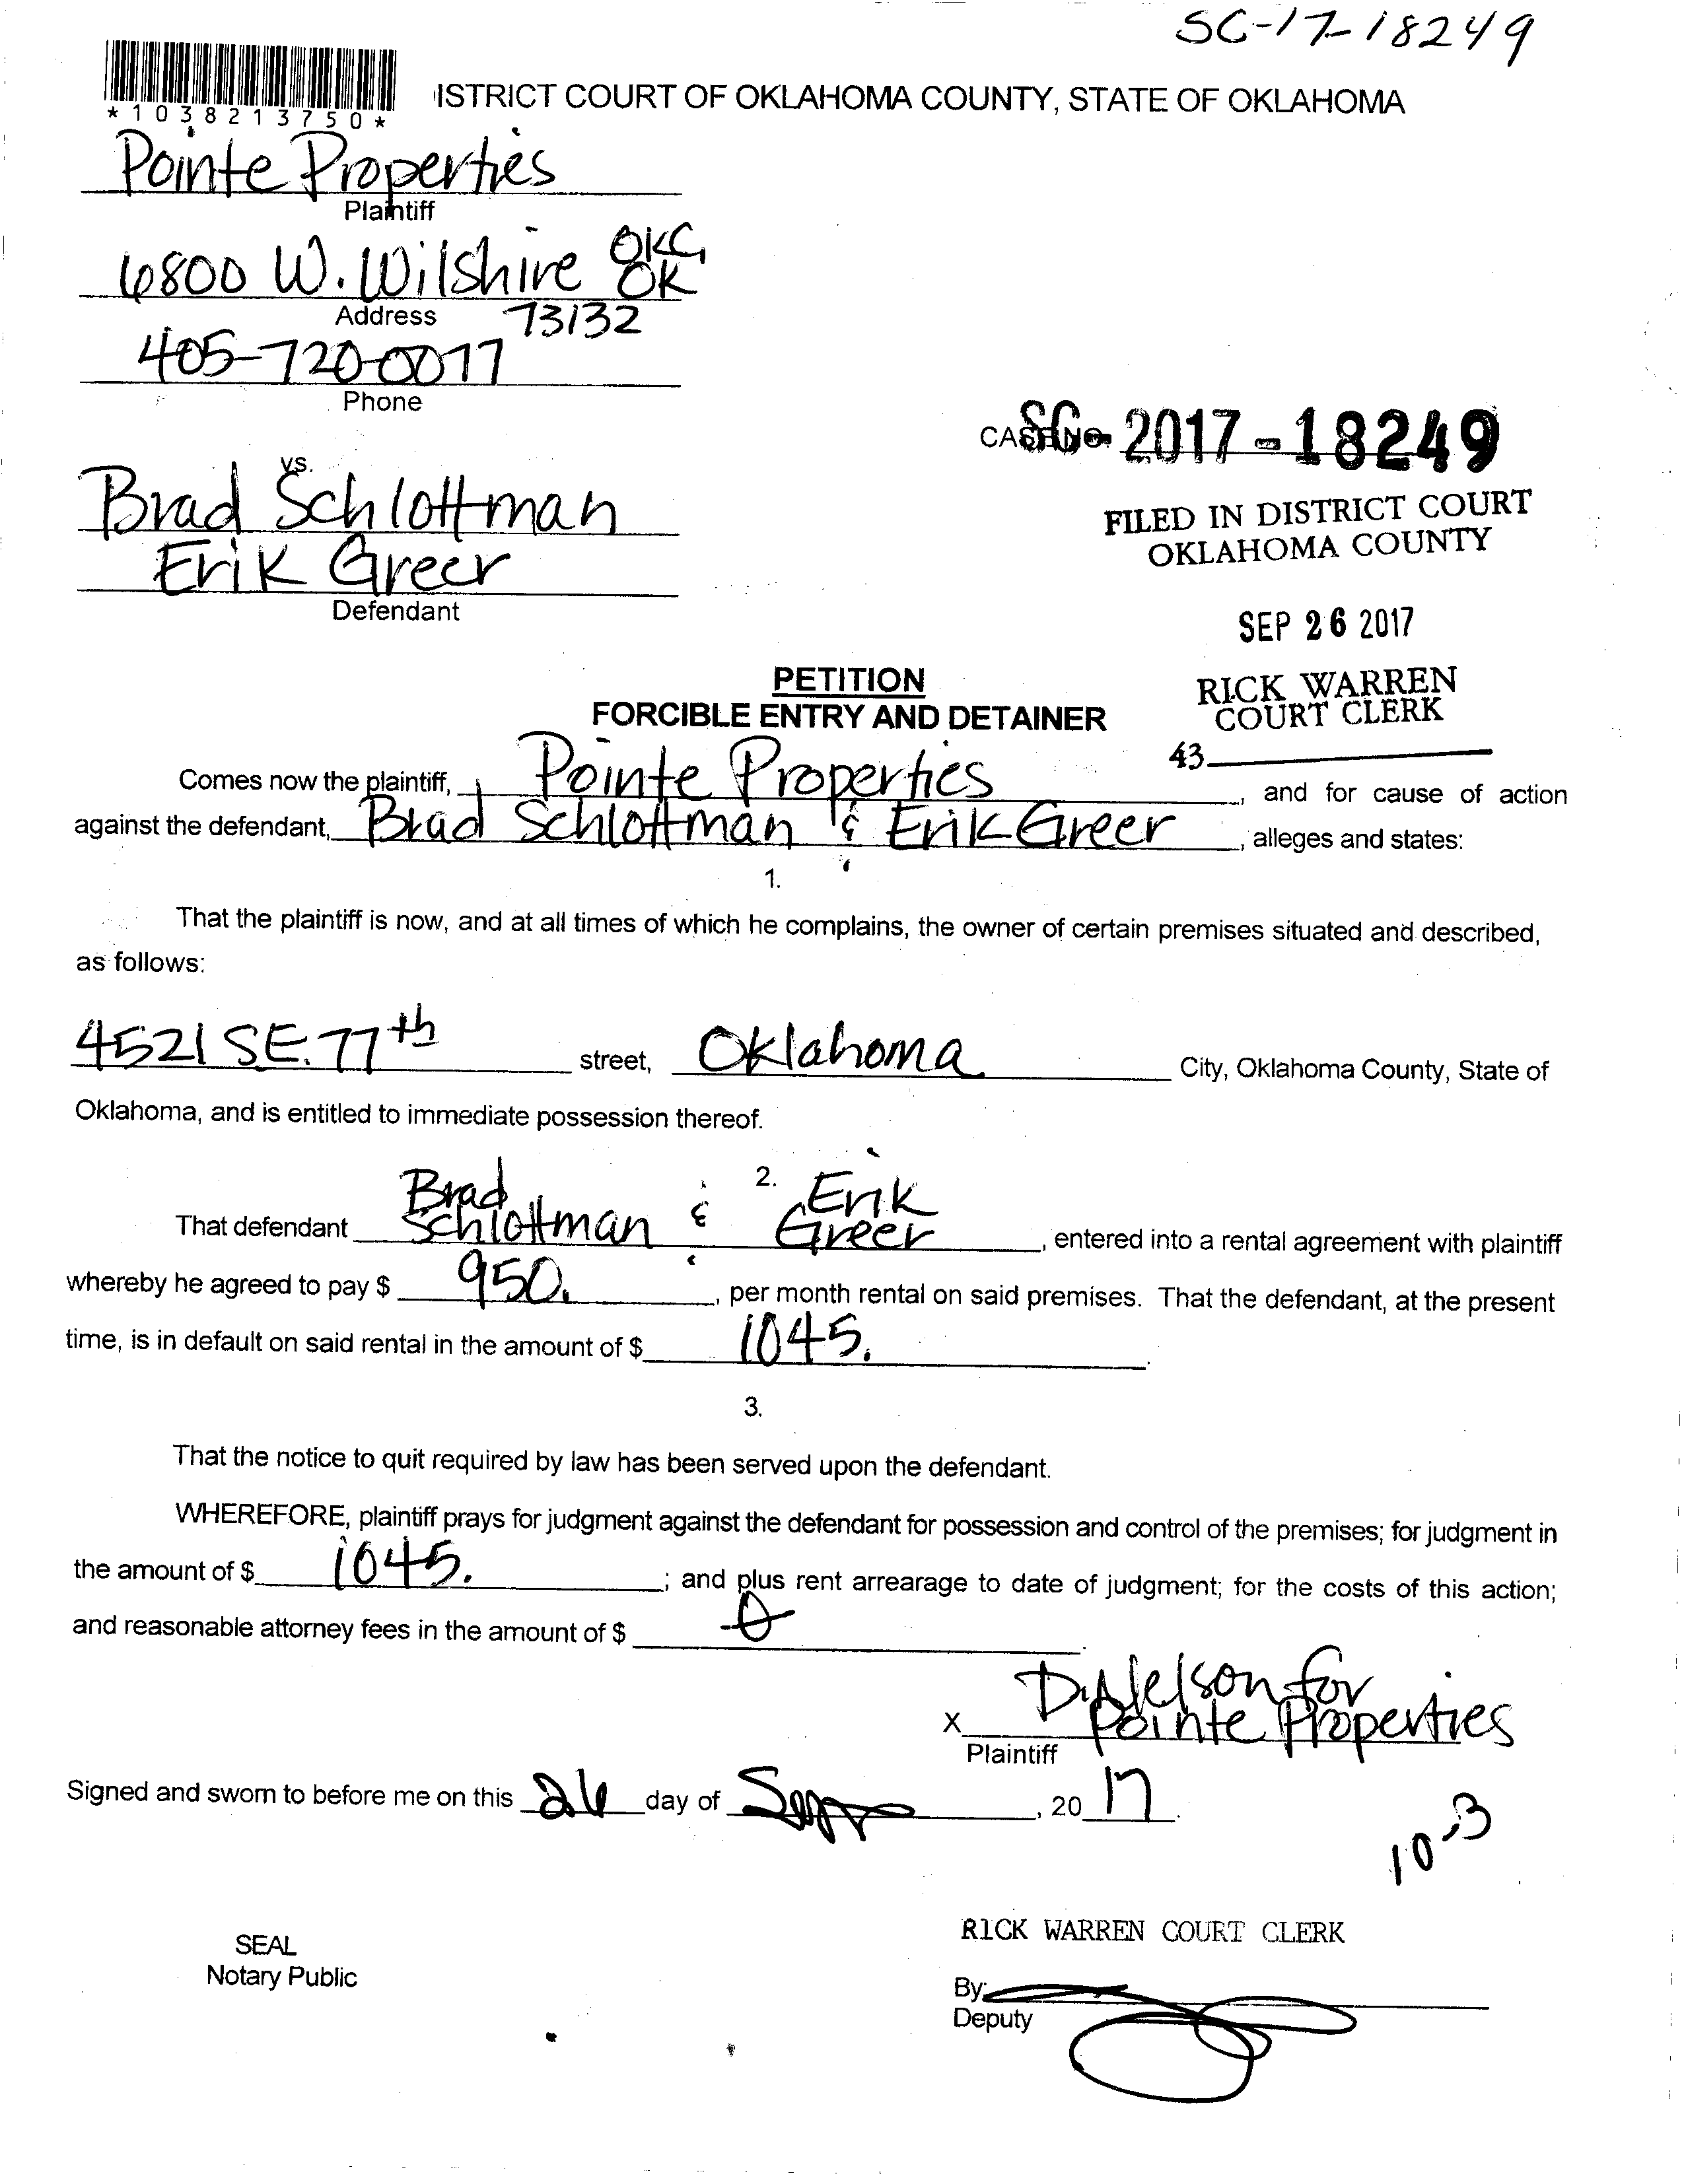 SC-17-18249
*1038213750*
ISTRICT COURT OF OKLAHOMA COUNTY, STATE OF OKLAHOMA
Pointe Properties
Plaintiff
6800 W. Wilshire OKC, OK
Address 73132
405-720-0077
Phone
CASE NO. SC-2017-18249
vs.
Brad Schlottman
Erik Greer
Defendant
FILED IN DISTRICT COURT
OKLAHOMA COUNTY
SEP 26 2017
RICK WARREN
COURT CLERK
43
PETITION
FORCIBLE ENTRY AND DETAINER
Comes now the plaintiff, Pointe Properties, and for cause of action
against the defendant, Brad Schlottman & Erik Greer, alleges and states:
1.
That the plaintiff is now, and at all times of which he complains, the owner of certain premises situated and described,
as follows:
4521 SE. 77th street, Oklahoma City, Oklahoma County, State of
Oklahoma, and is entitled to immediate possession thereof.
2.
That defendant Brad Schlottman & Erik Greer, entered into a rental agreement with plaintiff
whereby he agreed to pay $ 950., per month rental on said premises. That the defendant, at the present
time, is in default on said rental in the amount of $ 1045.
3.
That the notice to quit required by law has been served upon the defendant.
WHEREFORE, plaintiff prays for judgment against the defendant for possession and control of the premises; for judgment in
the amount of $ 1045.; and plus rent arrearage to date of judgment; for the costs of this action;
and reasonable attorney fees in the amount of $ 0
X D. Nelson for Pointe Properties
Plaintiff
Signed and sworn to before me on this 26 day of Sep, 20 17.
10-3
RICK WARREN COURT CLERK
SEAL
Notary Public
By:
Deputy